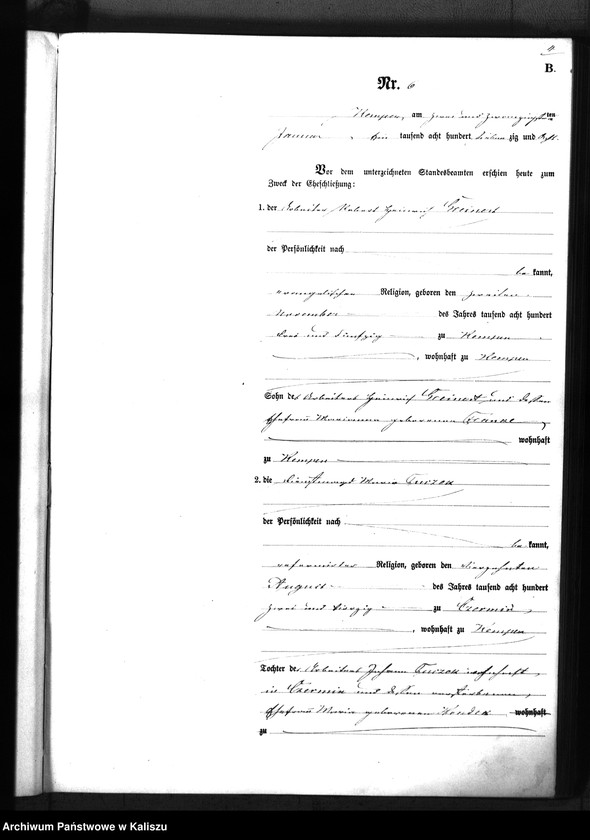 B.
Nr. 6
Kempen, am zwei und zwanzigsten
Januar tausend acht hundert siebenzig und
Vor dem unterzeichneten Standesbeamten erschien heute zum
Zweck der Eheschließung:
1. der Arbeiter Robert Heinrich Greinert
der Persönlichkeit nach
be kannt,
evangelischer Religion, geboren den zweiten
November des Jahres tausend acht hundert
und fünfzig zu Kempen
, wohnhaft zu Kempen
Sohn des Arbeiters Heinrich Greinert und dessen
Ehefrau Marianna geborenen
wohnhaft
zu Kempen
2. die Dienstmagd Maria
der Persönlichkeit nach
be kannt,
reformirter Religion, geboren den vierzehnten
August des Jahres tausend acht hundert
zwei und vierzig zu Czermin,
, wohnhaft zu Kempen
Tochter des Arbeiters Johann wohnhaft
in Czermin und dessen verstorbenen
Ehefrau Maria geborenen wohnhaft
zu
Archiwum Państwowe w Kaliszu